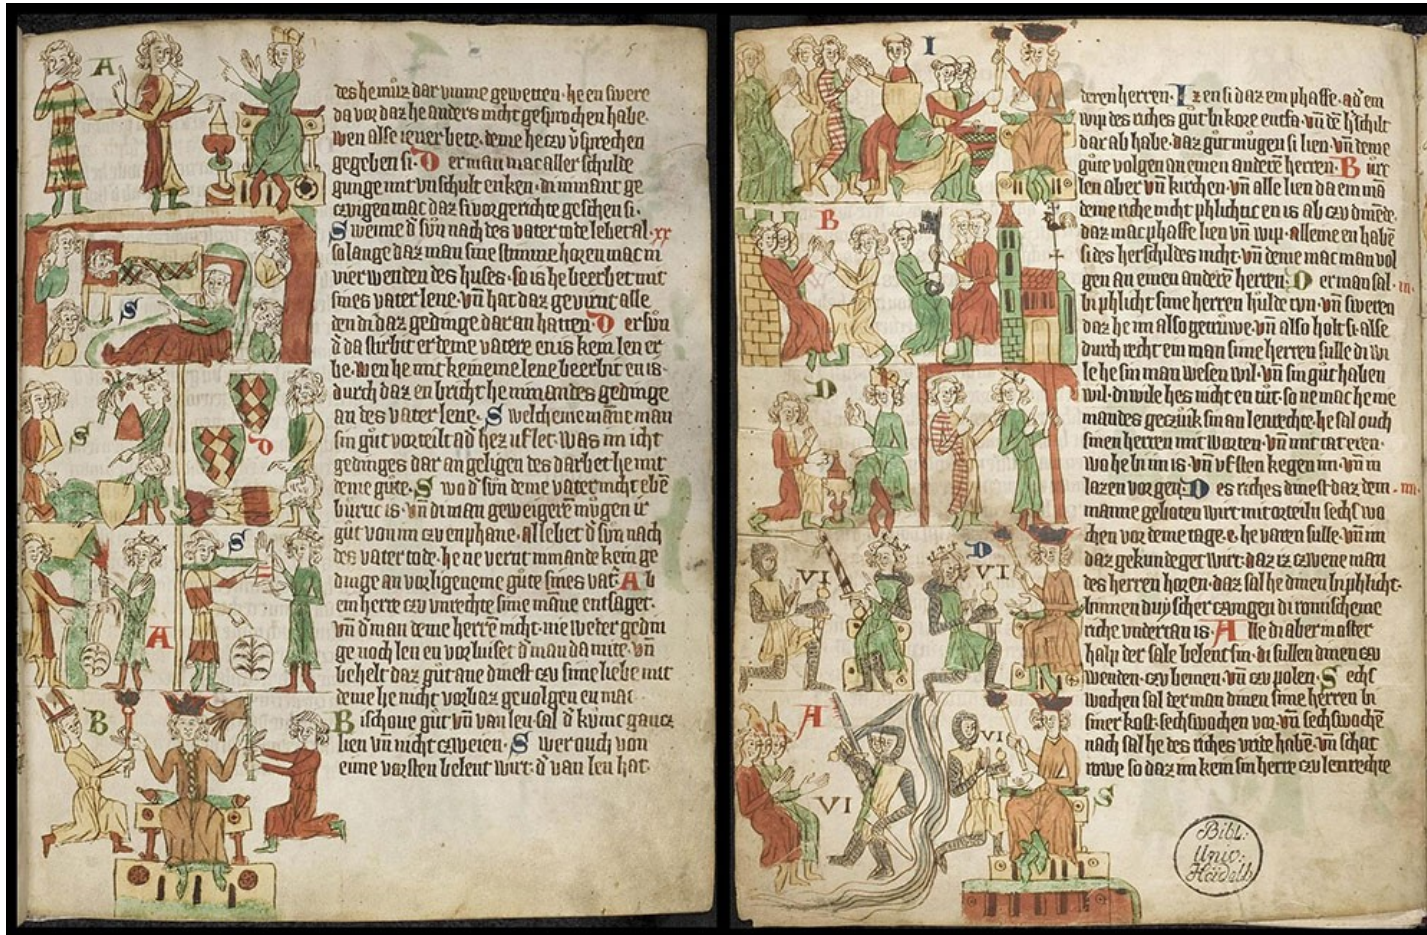 des he műz dar vmme gewetten · he en swere
da vor daz he anders nicht gesprochen habe ·
wen alse iener bete · deme he czu v̄sprechen
gegeben si · D er man mac aller schulde
gunge mit vnschult enken · di nimant ge
czugen mac daz si vor gerichte geschen si ·
S wenne d̄ sűn nach des vater tode lebet al · xx
so lange daz man sine stimme horen mac in
vier wenden des huses · so is he beerbet mit
sines vater lene · vn̄ hat daz geviirnt alle
den di daz gedinge dar an hatten · D er sűn
d̄ da stirbit er deme vatere en is kein len er
be · wen he mit keineme lene beerbit en is ·
durch daz en bricht he nimandes gedinge
an des vater lene · S welcheme māne man
sin gůt vorteilt ad̄ he z uf let · was im icht
gedinges dar an geligen des darbet he mit
deme gute · S wo d̄ sűn deme vater nicht ebē
bűrtic is · vn̄ di man geweigerē mugen ir
gůt von im czu enphane · al lebet d̄ sűn nach
des vater tode · he ne vernt nimande kein ge
dinge an vorligeneme gůte sines vat̄ · A b
ein herre czu vnrechte sime māne entsaget ·
vn̄ d̄ man deme herrē nicht · nie weder gedin
ge noch len en vorluset d̄ man da mite · vn̄
behelt daz gůt ane dinest czu sime liebe mit
deme he nicht vorbaz gevolgen en mac ·
B ischoue gůt vn̄ van len · sal d̄ kűnic gancz
lien vn̄ nicht czweien · S wer ouch von
eime vorsten belent wirt · d̄ van len hat ·
A
S
S
D
S
A
B
deren herren · I z en si daz em phaffe · ad̄ em
wip des riches gůt bi kore entfa · vn̄ dē h̄schilt
dar ab habe · daz gůt mugen si lien · vn̄ deme
gute volgen an einen anderē herren · B urc
len aber vn̄ kirchen · vn̄ alle lien da em mā
deme riche nicht phlichtic en is ab czu dinēde ·
daz mac phaffe lien vn̄ wip · alleine en habē
si des herschildes nicht · vn̄ deme mac man vol
gen an einen anderē herren · D er man sal · iii ·
bi phlicht sime herren hulde tvn · vn̄ sweren
daz he im also getruwe · vn̄ also holt si · alse
durch recht ein man sime herren sulle di wi
le he sin man wesen wil · vn̄ sin gůt haben
wil · di wile he s nicht en tůt · so ne mac he nie
mandes geczuk sin an lenrechte · he sal ouch
sinen herren mit worten · vn̄ mit tat eren ·
wo he bi im is · vn̄ vf sten kegen im · vn̄ in
lazen vor gen · D es riches dinest daz dem · iiii ·
manne geboten wirt mit orteiln sechs wo
chen vor deme tage · e · he varen sulle · vn̄ im
daz gekundeget wirt · daz iz czwene man
des herren horen · daz sal he dinen bi phlicht ·
binnen duzscher czungen di romischeme
riche vndertan is · A lle di aber in oster
halp der sale belent sin · di sullen dinen czu
wenden · czu bemen · vn̄ czu polen · S echs
wochen sal der man dinen sime herren bi
siner kost · sechs wochen vor · vn̄ sechs wochē
nach sal he des riches vride habē · vn̄ schac
rowe so daz im kein sin herre czu lenrechte
I
B
D
VI
D
VI
A
VI
VI
S
Bibl:
Univ:
Heidelb.